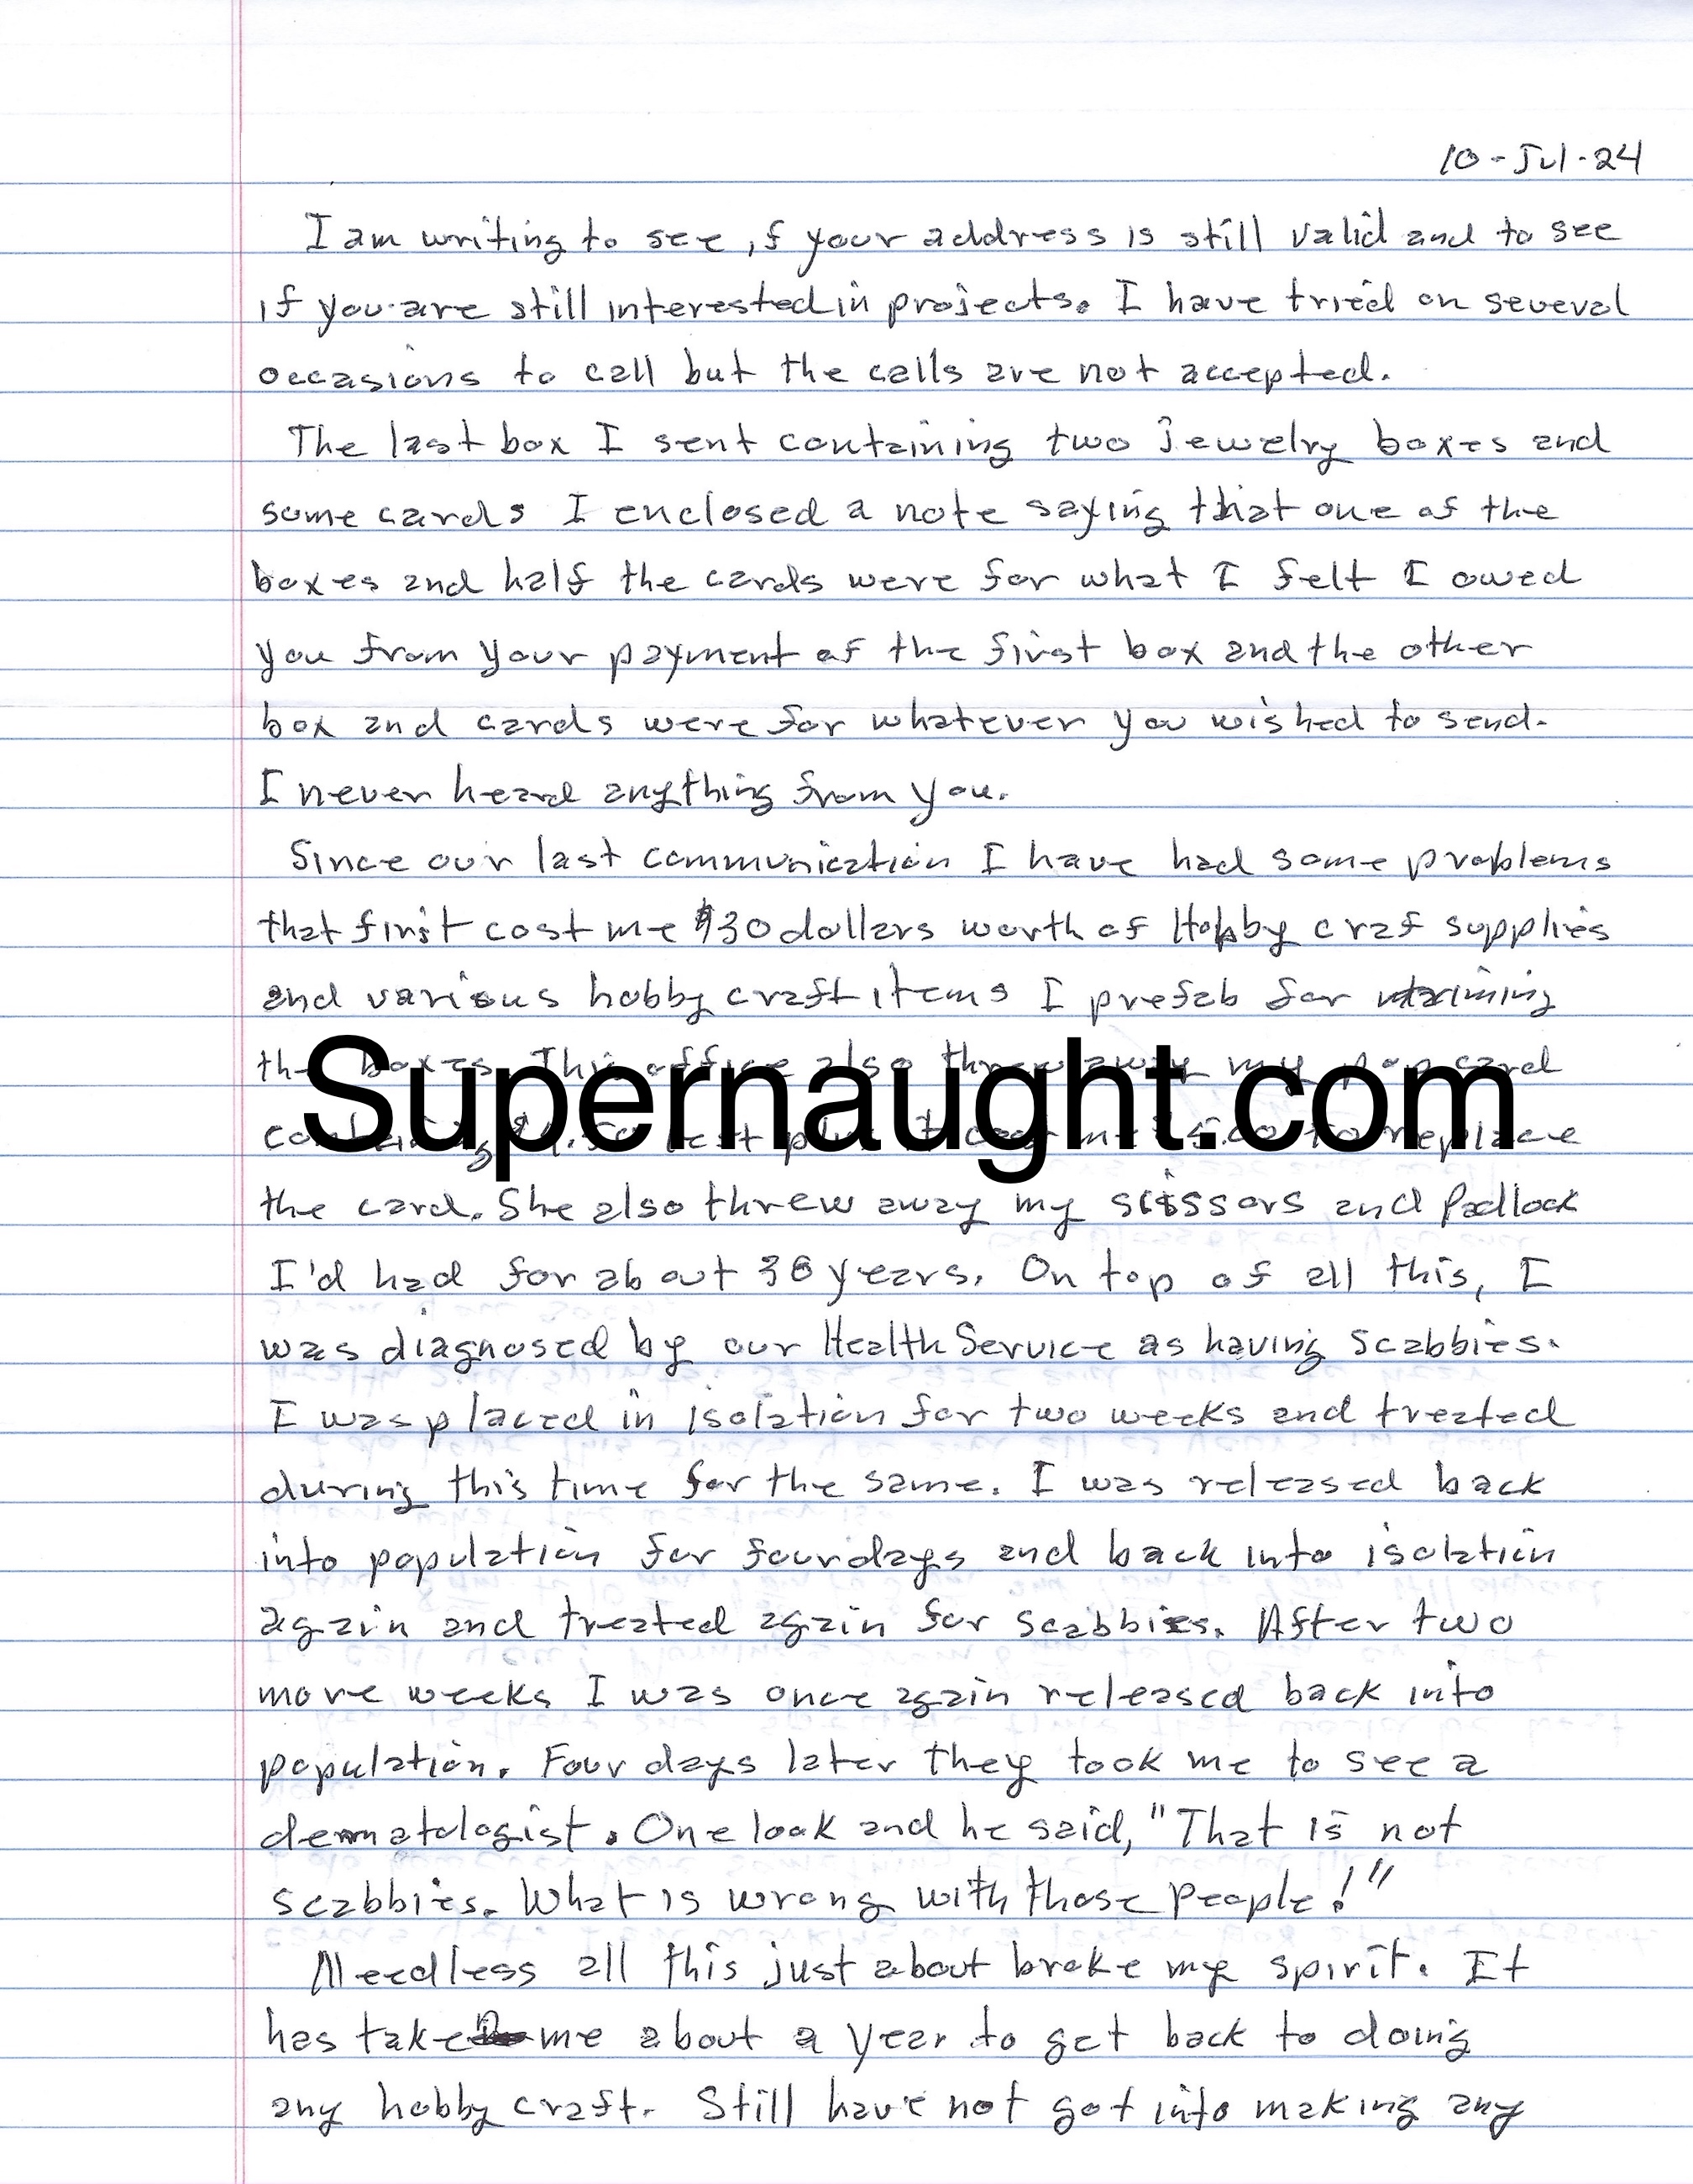 10-Jul-24
I am writing to see if your address is still valid and to see
if you are still interested in projects. I have tried on several
occasions to call but the calls are not accepted.
The last box I sent containing two jewelry boxes and
some cards I enclosed a note saying that one of the
boxes and half the cards were for what I felt I owed
you from your payment of the first box and the other
box and cards were for whatever you wished to send.
I never heard anything from you.
Since our last communication I have had some problems
that first cost me $30 dollars worth of Hobby craf supplies
and various hobby craft items I prefab for
the boxes. This office also threw away my card
Supernaught.com
replace
the card. She also threw away my scissors and Padlock
I'd had for about 36 years. On top of all this, I
was diagnosed by our Health Service as having scabbies.
I was placed in isolation for two weeks and treated
during this time for the same. I was released back
into population for four days and back into isolation
again and treated again for scabbies. After two
more weeks I was once again released back into
population. Four days later they took me to see a
dermatologist. One look and he said, "That is not
scabbies. What is wrong with those people!"
Needless all this just about broke my spirit. It
has taken me about a year to get back to doing
any hobby craft. Still have not got into making any